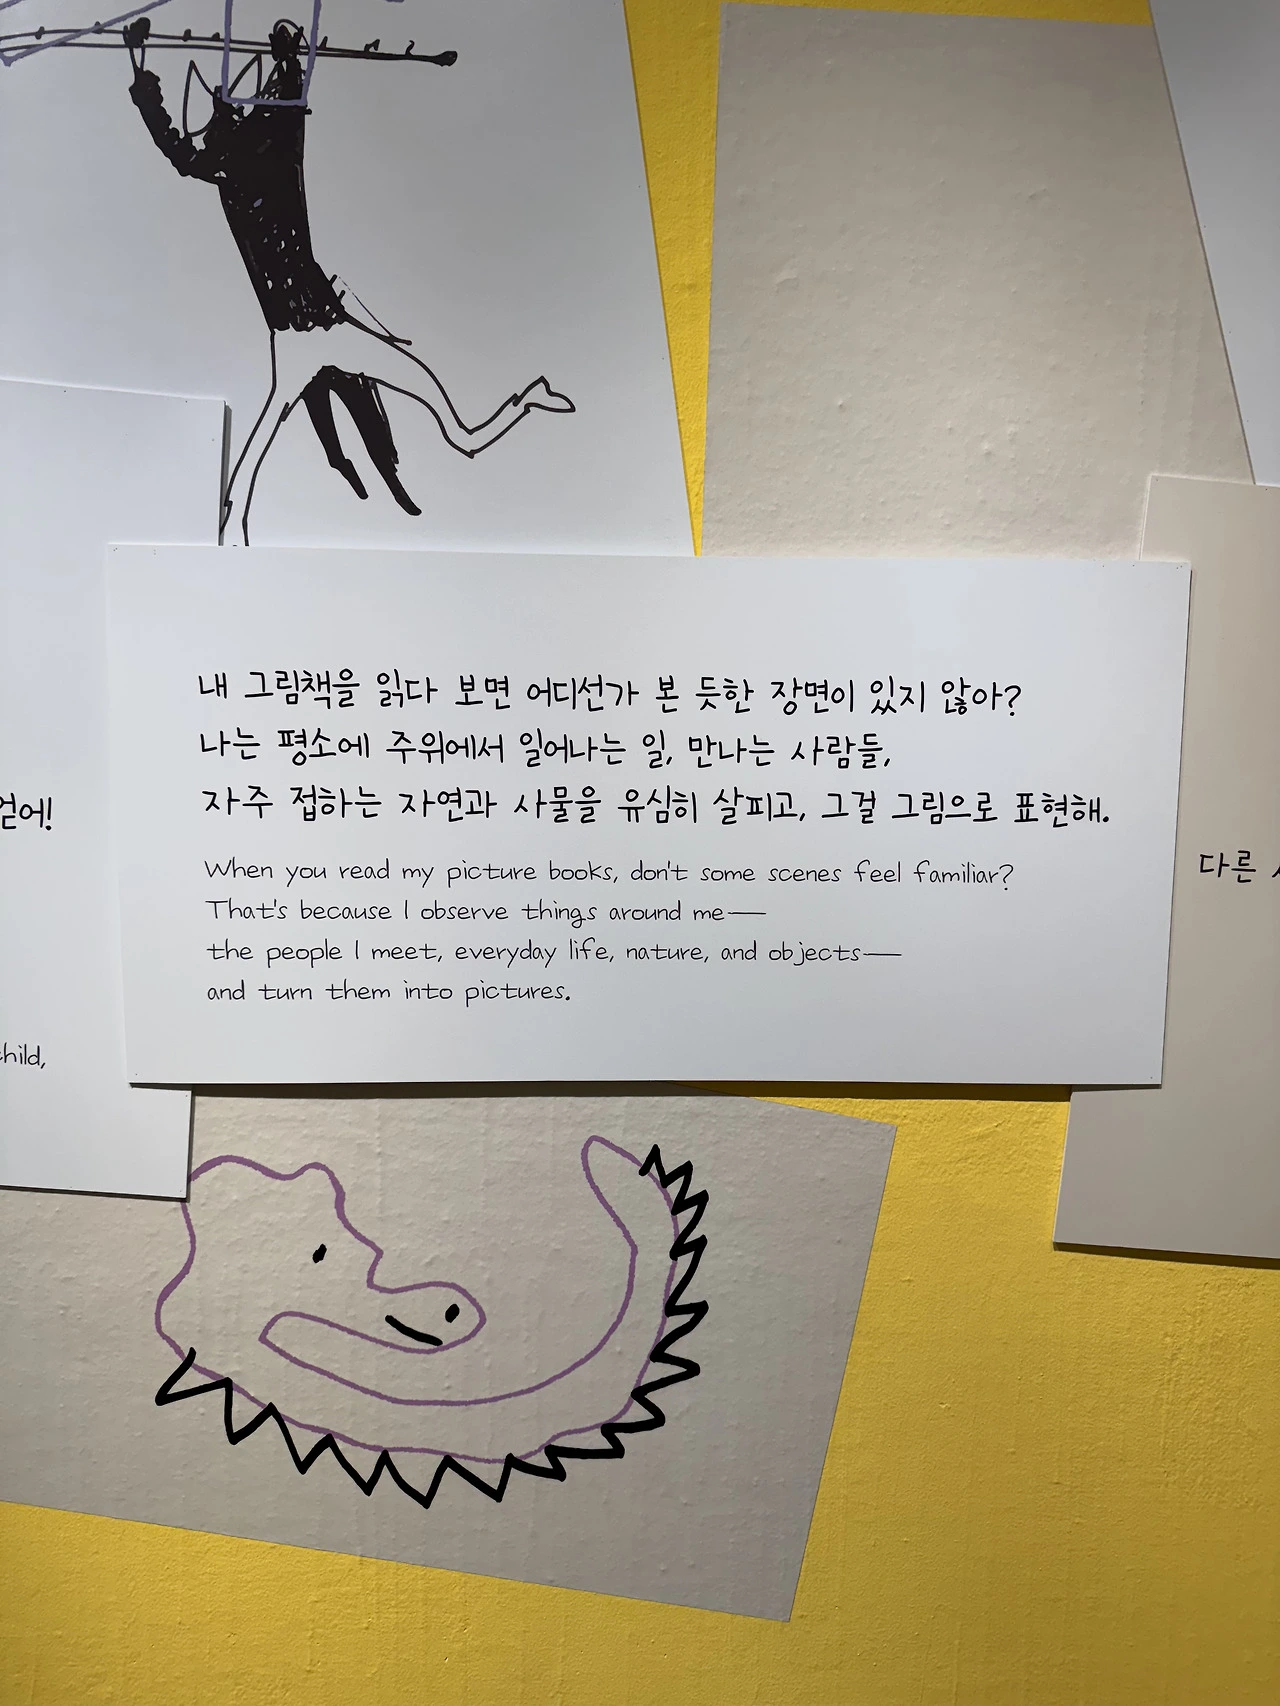 내 그림책을 읽다 보면 어디선가 본 듯한 장면이 있지 않아?
나는 평소에 주위에서 일어나는 일, 만나는 사람들,
자주 접하는 자연과 사물을 유심히 살피고, 그걸 그림으로 표현해.
When you read my picture books, don't some scenes feel familiar?
That's because I observe things around me—
the people I meet, everyday life, nature, and objects—
and turn them into pictures.
다른